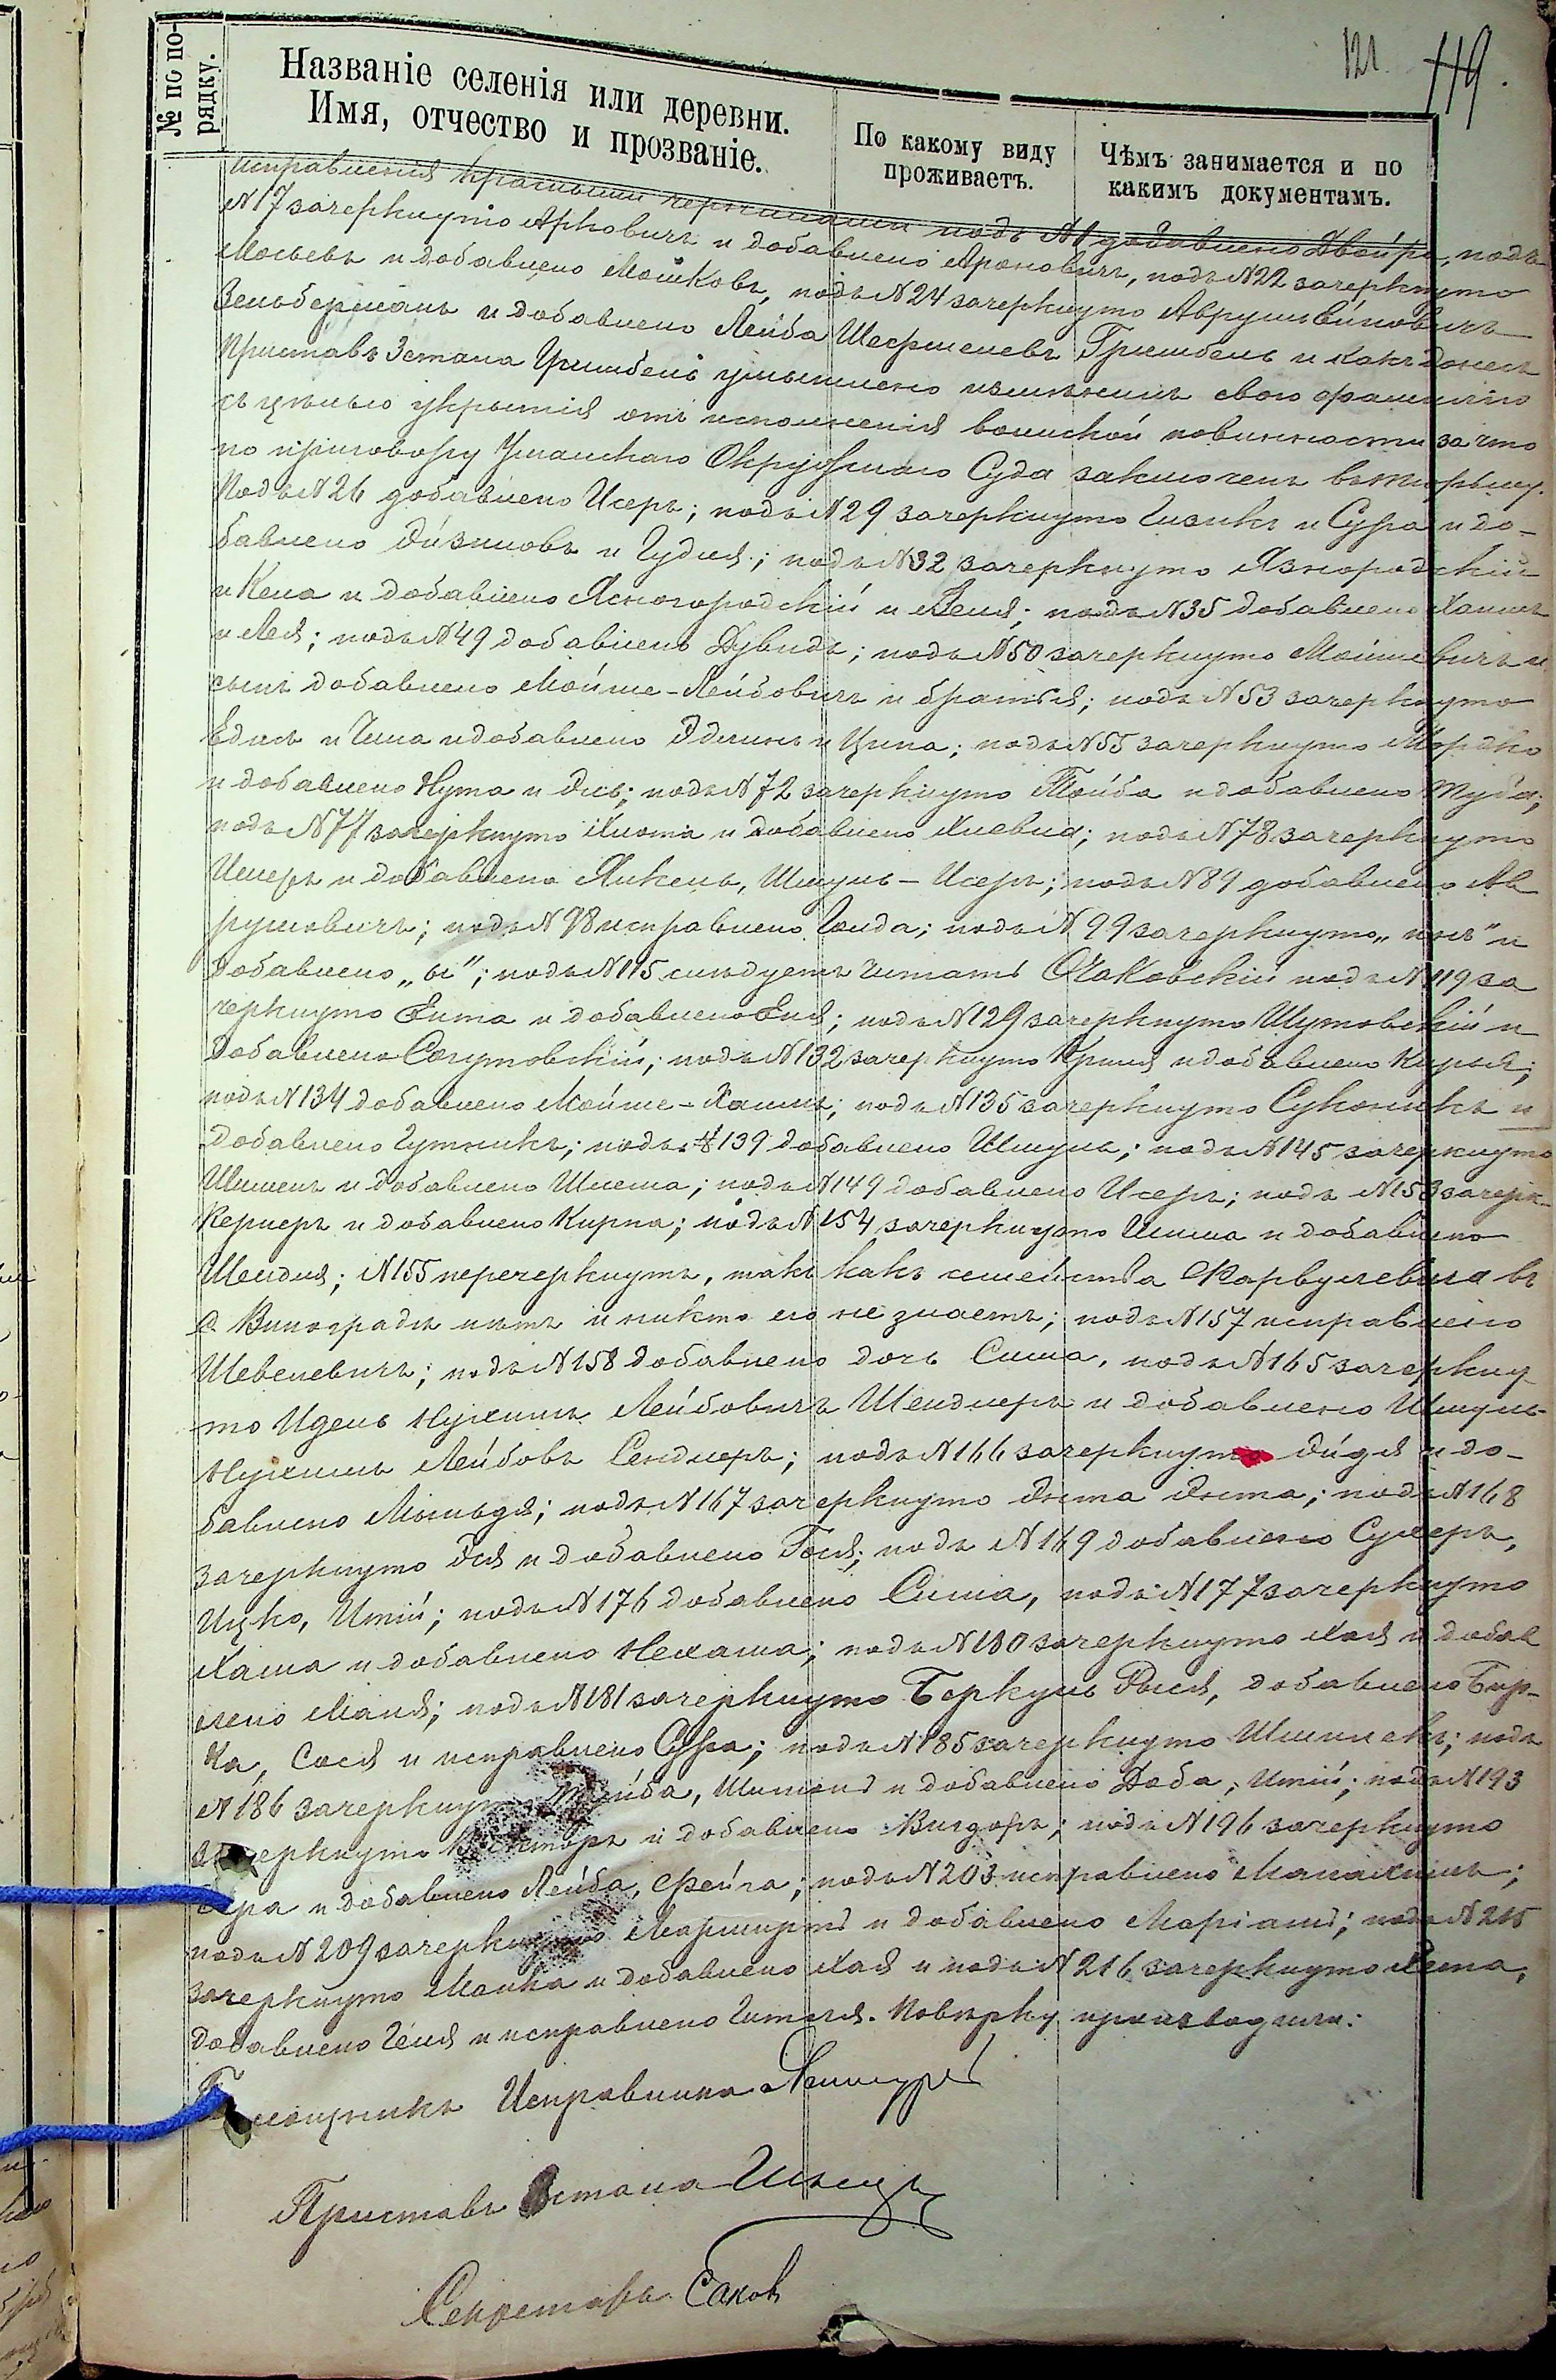 121. 119.
№ по по-
рядку.
Названіе селенія или деревни.
Имя, отчество и прозваніе.
По какому виду
проживаетъ.
Чѣмъ занимается и по
какимъ документамъ.
исправленія красными чернилами подъ №1 добавлено Двойра, подъ
№17 зачеркнуто Арковичъ и добавлено Ароновичъ, подъ №22 зачеркнуто
Мосьевъ и добавлено Мошковъ, подъ №24 зачеркнуто
Зельберманъ и добавлено Лейба Гришбень и какъ донесъ
Приставъ 3 стана Гришбень умышлено измѣнилъ свою фамилію
съ цѣлью укрытія отъ исполненія воинской повинности за что
по приговору Уманскаго Окружнаго Суда заключенъ въ тюрьму.
Подъ №26 добавлено Исеръ; подъ №29 зачеркнуто и Сура и до-
бавлено и Гудля; подъ №32 зачеркнуто Язногородскій
и Кена и добавлено Ясногородскій и подъ №35 добавлено Хаимъ
и Лея; подъ №49 добавлено Дувидъ; подъ №50 зачеркнуто Мойшевичъ и
сынъ добавлено Мойше-Лейбовичъ и братья; подъ №53 зачеркнуто
и добавлено и Ципа; подъ №55 зачеркнуто Мордко
и добавлено Нута и Эль; подъ №72 зачеркнуто Тойба и добавлено Туба;
подъ №77 зачеркнуто и добавлено Хлевна; подъ №78 зачеркнуто
и добавлено Янкель, Шмуль-Исеръ; подъ №89 добавлено Ав
румовичъ; подъ №98 исправлено Голда; подъ №99 зачеркнуто и
добавлено „ы"; подъ №115 слѣдуетъ читать Очаковскій подъ №119 за
черкнуто Ента и добавлено Еня; подъ №129 зачеркнуто Шутовскій и
добавлено Согутовскій; подъ №132 зачеркнуто и добавлено
подъ №134 добавлено Мойше-Хаимъ; подъ №135 зачеркнуто Суконикъ и
добавлено Гутникъ; подъ №139 добавлено Шмуль; подъ №145 зачеркнуто
и добавлено Шлема; подъ №149 добавлено Исеръ; подъ №153 зачерк-
Кернеръ и добавлено Кирпа; подъ №154 зачеркнуто и добавлено
Шендля; №155 перечеркнутъ, такъ какъ семейства въ
с. Виноградѣ нѣтъ и никто его не знаетъ; подъ №157 исправлено
Шевелевичъ; подъ №158 добавлено дочь Сима, подъ №165 зачеркну
то Идель Нухимъ Лейбовичъ Шендлеръ и добавлено Шмуль-
Нухимъ Лейбовъ Сендлеръ; подъ №166 зачеркнуто и до-
бавлено подъ №167 зачеркнуто подъ №168
зачеркнуто и добавлено Гося; подъ №169 добавлено Сухеръ,
Ицко, Итій; подъ №176 добавлено Сима, подъ №177 зачеркнуто
Хама и добавлено Нехама; подъ №180 зачеркнуто Хая и добав
лено Маня; подъ №181 зачеркнуто Беркунъ добавлено Бер-
ка, Сося и исправлено Сура; подъ №185 зачеркнуто подъ
№186 зачеркнуто и добавлено Доба, Итій; подъ №193
зачеркнуто и добавлено Вигдоръ; подъ №196 зачеркнуто
Сура и добавлено Лейба, Фейга; подъ №203 исправлено
подъ №209 зачеркнуто и добавлено Маріамъ; подъ №215
зачеркнуто Манка и добавлено Хая и подъ №216 зачеркнуто
добавлено Геня и исправлено Гитля. Повѣрку производили:
Помощникъ Исправника
Приставъ 3 стана
Секретарь Саков